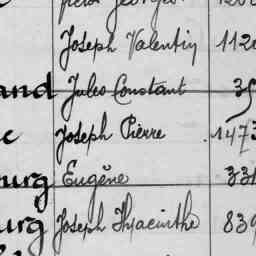 Joseph Valentin 112
and Jules Constant 35
Joseph Pierre 1473
ourg Eugène 331
urg Joseph Hyacinthe 839